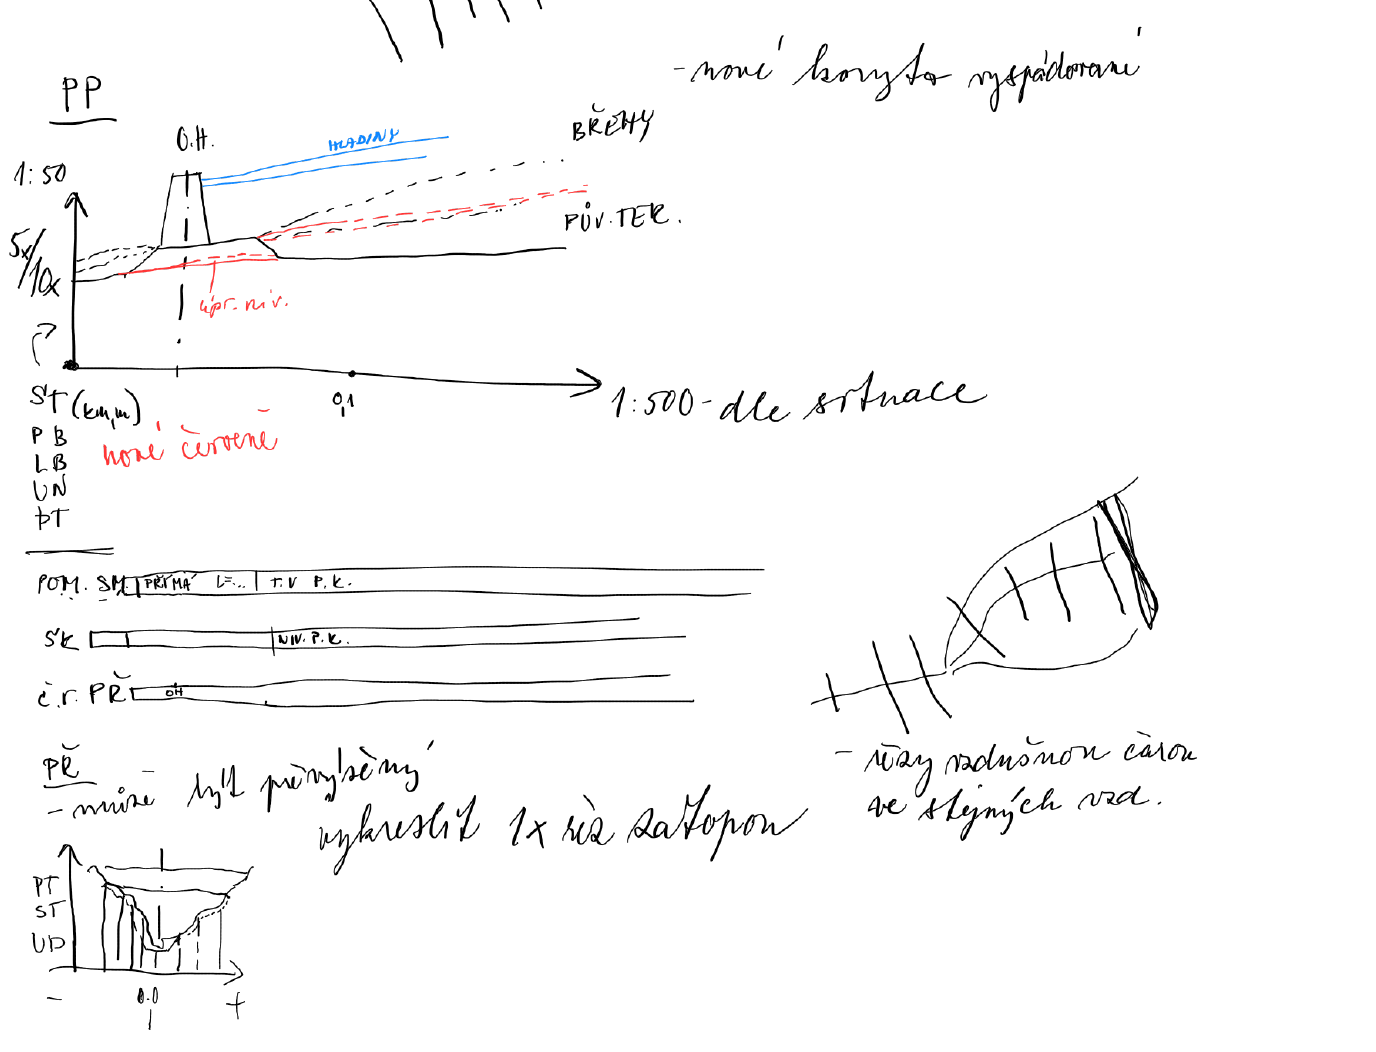 - nové koryto vyspádované
PP
O.H.
HLADINY
BŘEHY
1:50
PŮV. TER.
5x/10x
úpr. niv.
ST (km, m)
0,1
1:500 - dle situace
nové červeně
PB
LB
UN
PT
POM. SM. PŘÍMÁ L=... T.V P.K.
SK NIV. P.K.
č.r. PŘ OH
PŘ
- může být převýšený
vykreslit 1x řez zátopou
- řezy vzdušnou čarou
ve stejných vzd.
PT
ST
UD
- 0.0 +